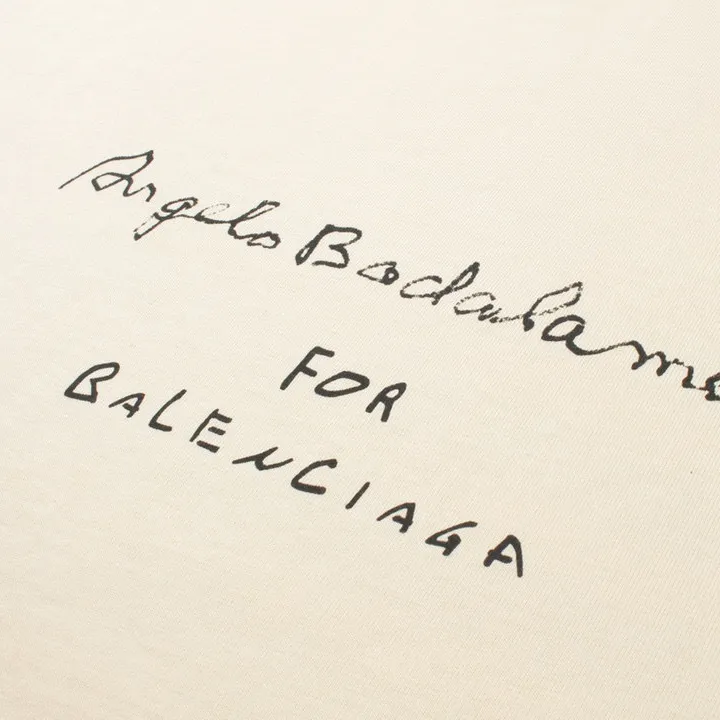 Angelo Badalame
FOR
BALENCIAGA